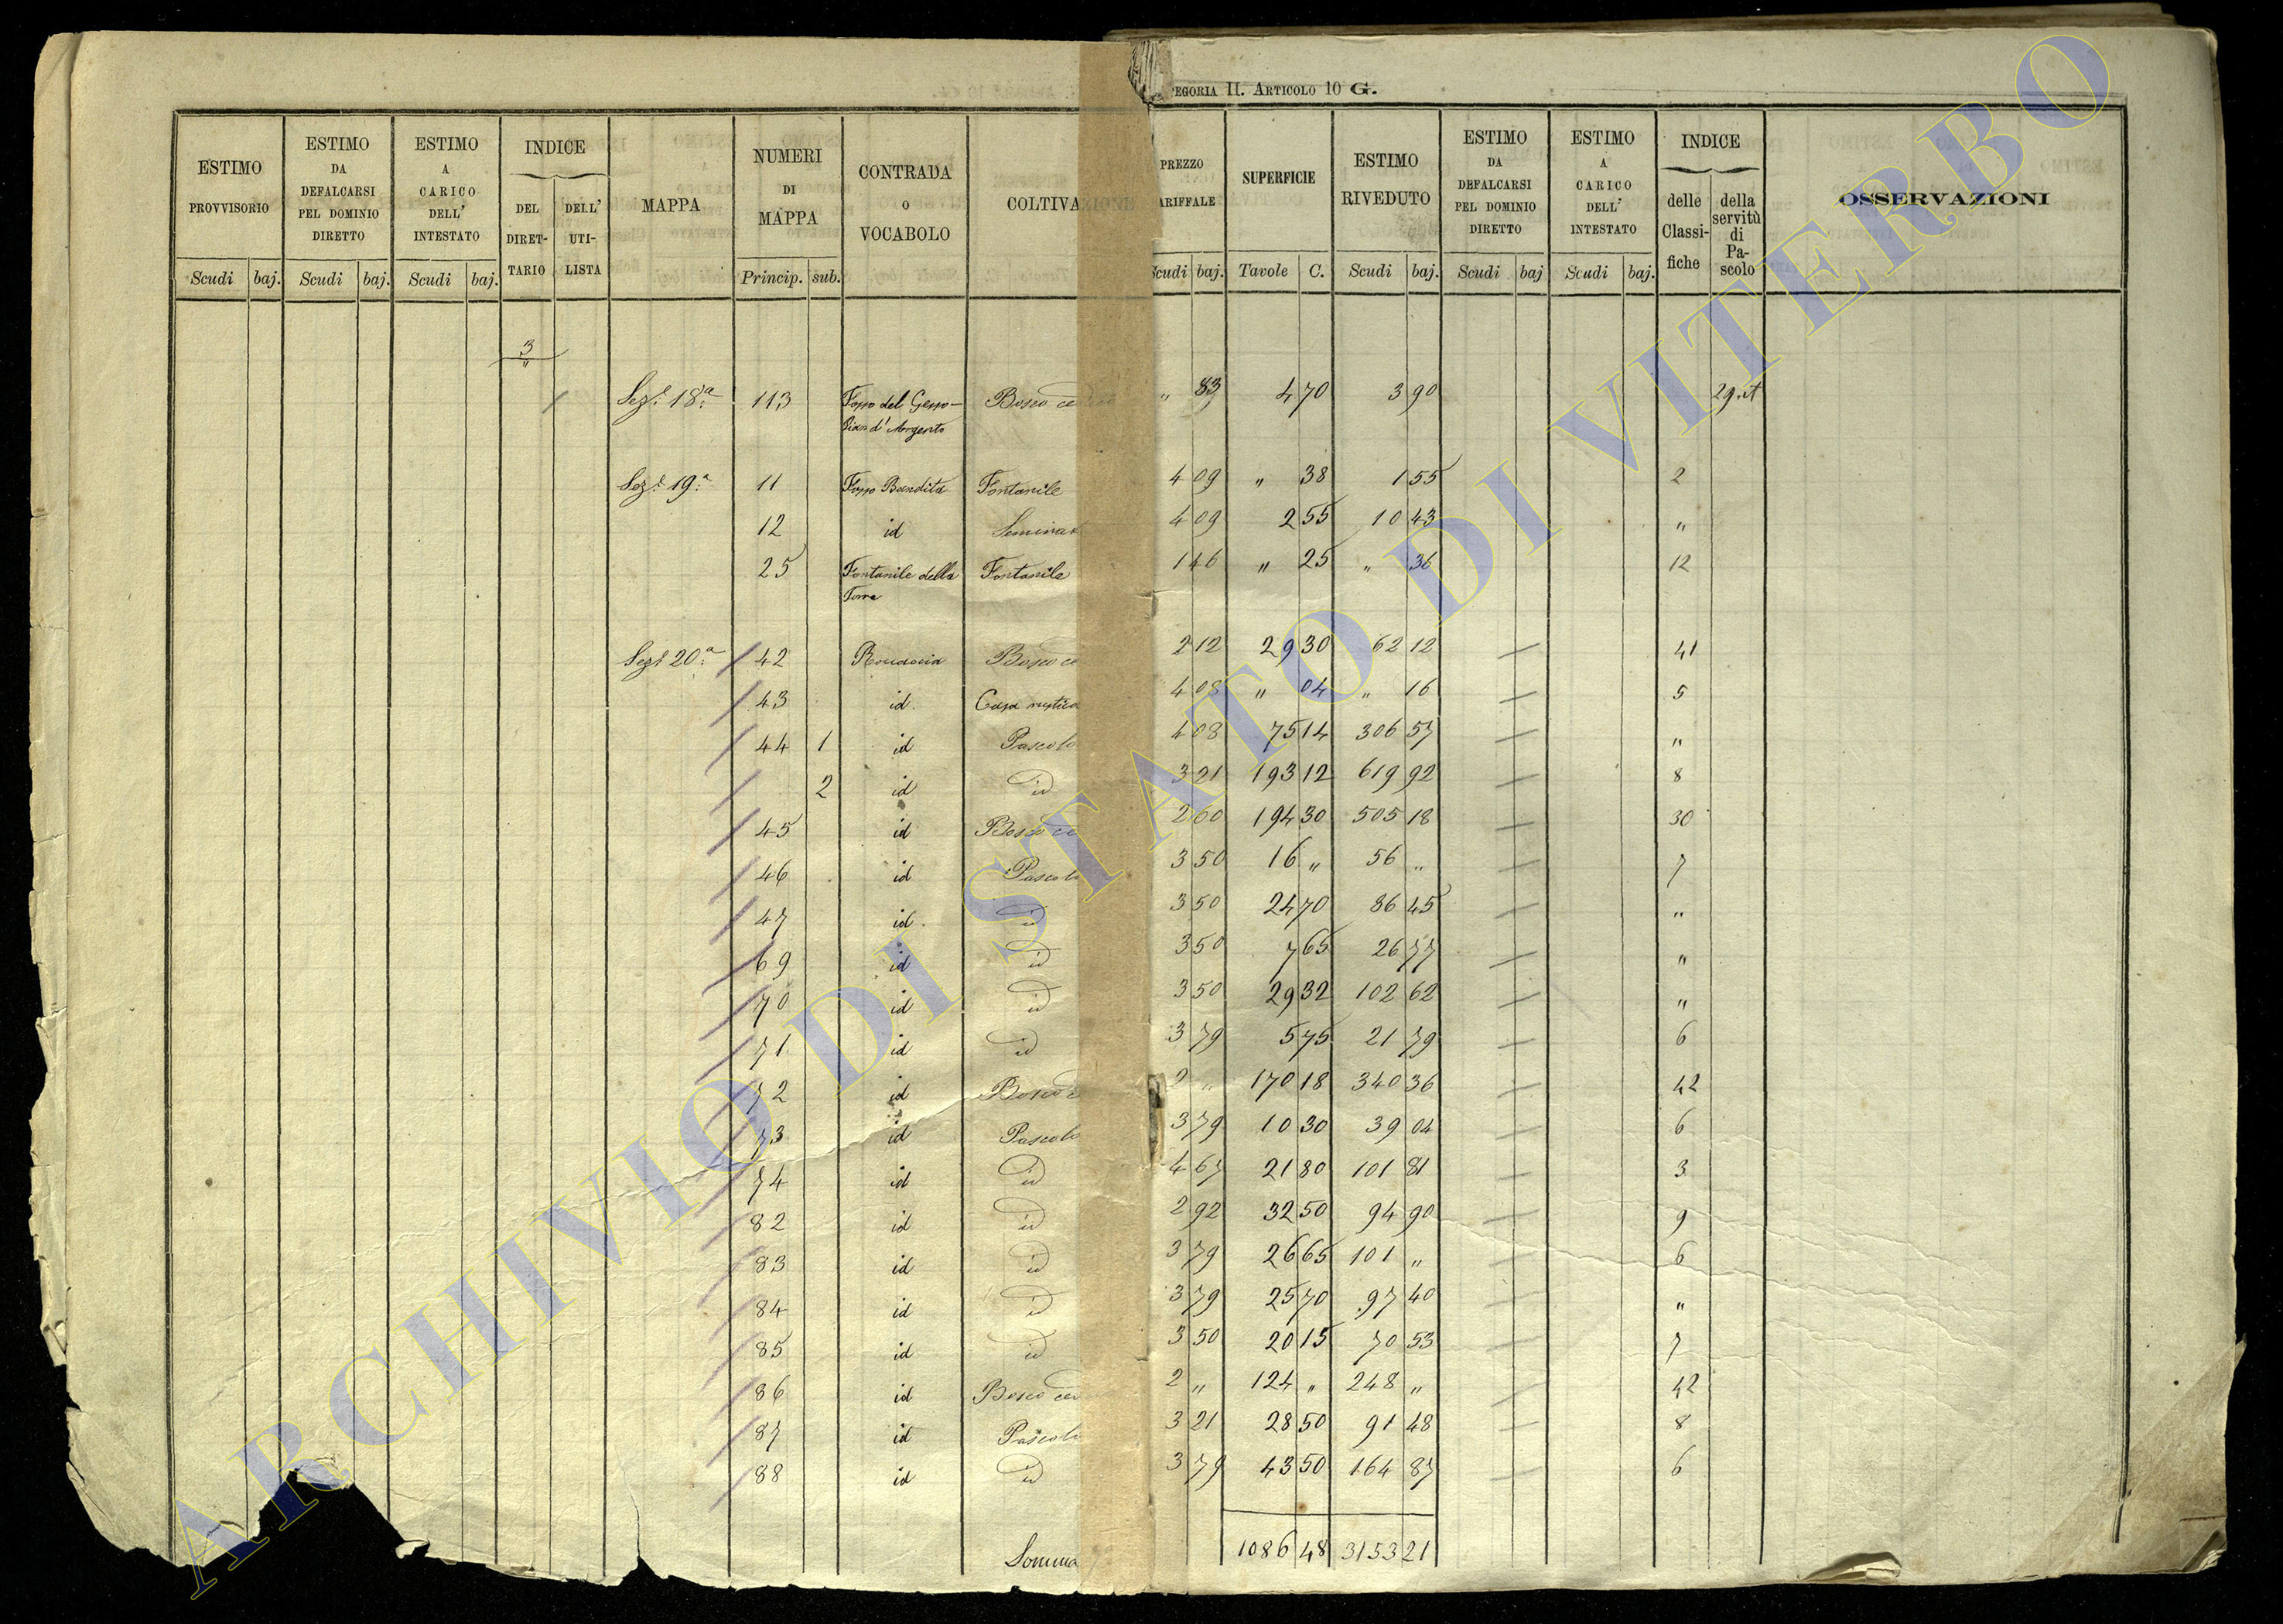 CATEGORIA II. ARTICOLO 10 G.
ESTIMO PROVVISORIO Scudi baj.
ESTIMO DA DEFALCARSI PEL DOMINIO DIRETTO Scudi baj.
ESTIMO A CARICO DELL' INTESTATO Scudi baj.
INDICE DEL DIRET-TARIO DELL' UTI-LISTA
MAPPA
NUMERI DI MAPPA Princip. sub.
CONTRADA O VOCABOLO
COLTIVAZIONE
PREZZO TARIFFALE Scudi baj.
SUPERFICIE Tavole C.
ESTIMO RIVEDUTO Scudi baj.
ESTIMO DA DEFALCARSI PEL DOMINIO DIRETTO Scudi baj
ESTIMO A CARICO DELL' INTESTATO Scudi baj.
INDICE delle Classi-fiche della servitù di Pa-scolo
OSSERVAZIONI
3
"
Sez.e 18.a 113 Fosso del Gesso - Bosco ceduo " 83 4 70 3 90
Pian d'Argento
Sez.e 19.a 11 Fosso Bandita Fontanile 4 09 " 38 1 55 2
12 id Seminat 4 09 2 55 10 43 "
25 Fontanile della Fontanile 1 46 " 25 " 36 12
Torre
Sez.e 20.a 42 Bosco ce 2 12 29 30 62 12 41
43 id. Casa rustica 4 08 " 04 " 16 5
44 1 id Pascolo 4 08 75 14 306 57 "
2 id id 3 21 193 12 619 92 8
45 id Bosco ce 2 60 194 30 505 18 30
46 id Pascolo 3 50 16 " 56 " 7
47 id. id 3 50 24 70 86 45 "
69 id id 3 50 7 65 26 77 "
70 id id 3 50 29 32 102 62 "
71 id id 3 79 5 75 21 79 6
72 id Bosco c 2 " 170 18 340 36 42
73 id Pascolo 3 79 10 30 39 04 6
74 id id 4 67 21 80 101 81 3
82 id id 2 92 32 50 94 90 9
83 id id 3 79 26 65 101 " 6
84 id id 3 79 25 70 97 40 "
85 id id 3 50 20 15 70 53 7
86 id Bosco ced 2 " 124 " 248 " 42
87 id Pascolo 3 21 28 50 91 48 8
88 id id 3 79 43 50 164 87 6
Somma 1086 48 3153 21
ARCHIVIO DI STATO DI VITERBO